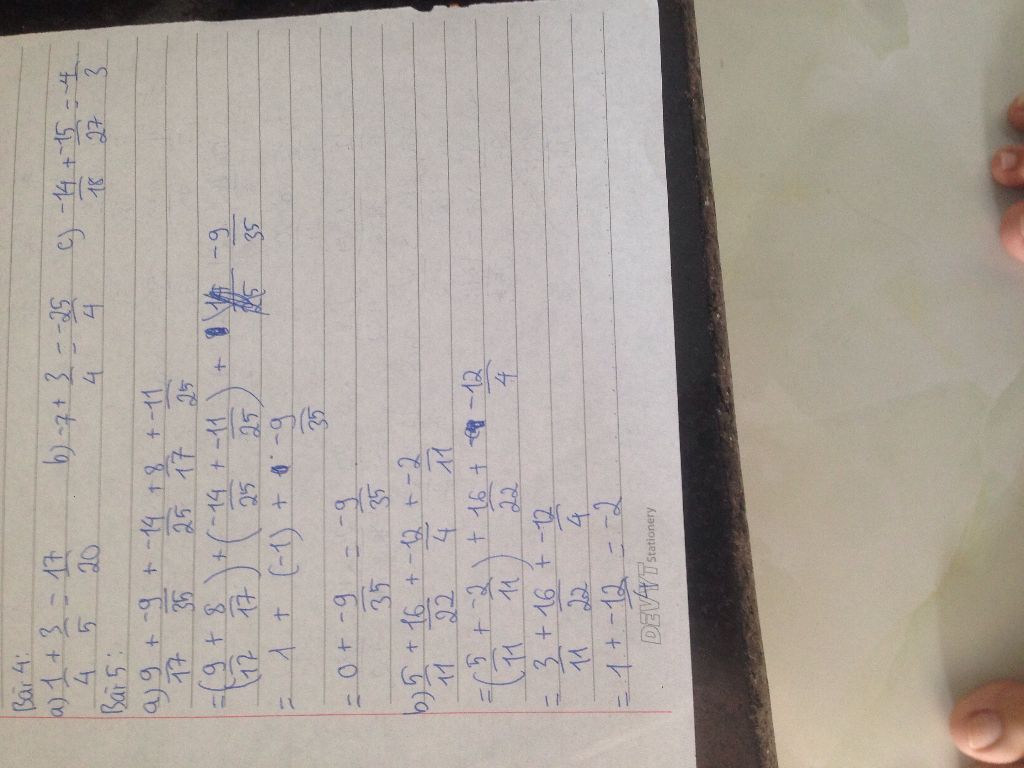 Bài 4:
a) 1/4 + 3/5 = 17/20 b) -7 + 3/4 = -25/4 c) -14/18 + -15/27 = -4/3
Bài 5:
a) 9/17 + -9/35 + -14/25 + 8/17 + -11/25
= (9/17 + 8/17) + (-14/25 + -11/25) + -9/35
= 1 + (-1) + -9/35
= 0 + -9/35 = -9/35
b) 5/11 + 16/22 + -12/4 + -2/11
= (5/11 + -2/11) + 16/22 + -12/4
= 3/11 + 16/22 + -12/4
= 1 + -12/4 = -2
DEVYT Stationery